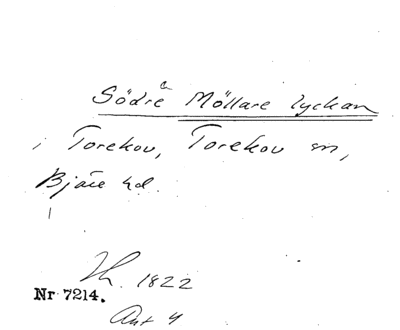 Södre Möllare lyckan
i Torekov, Torekov sn,
Bjäre hd.
1822
Nr 7214.
Akt 4